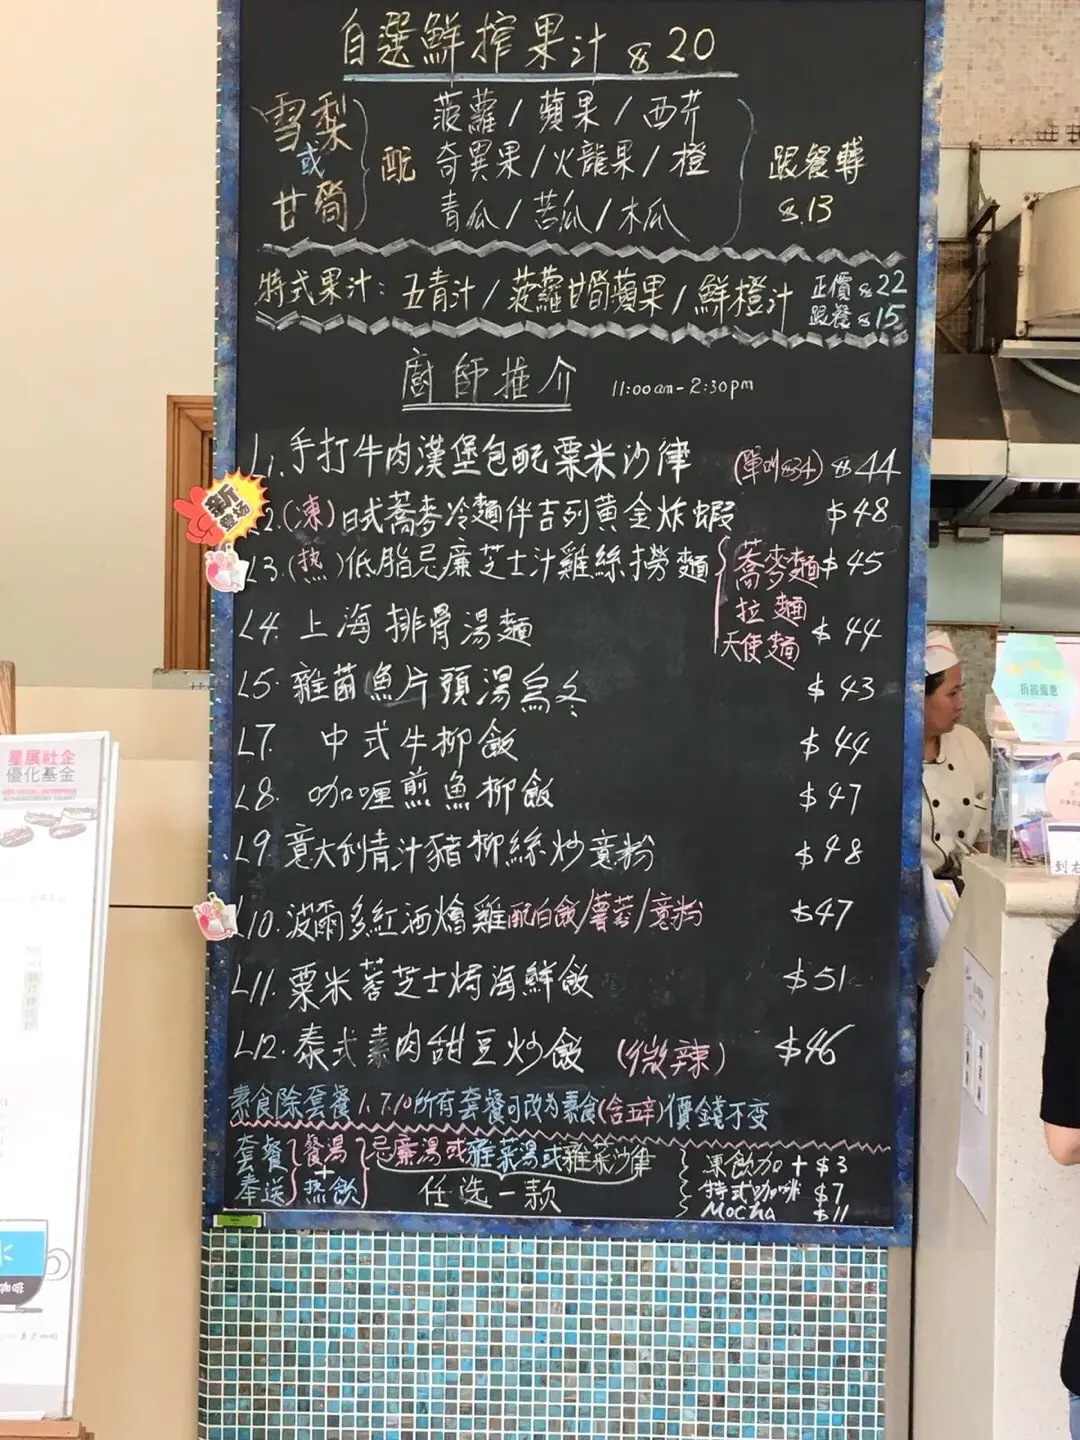 自選鮮搾果汁 $20
雪梨
或
甘筍
配
菠蘿/蘋果/西芹
奇異果/火龍果/橙
青瓜/苦瓜/木瓜
跟餐轉
$13
特式果汁: 五青汁/菠蘿甘筍蘋果/鮮橙汁
正價 $22
跟餐 $15
廚師推介 11:00am-2:30pm
L1.手打牛肉漢堡包配粟米沙律 (單叫$34) $44
新
登场
L2.(凍)日式蕎麥冷麵伴吉列黃金炸蝦 $48
L3.(热)低脂忌廉芝士汁雞絲撈麵 蕎麥麵 $45
拉麵
天使麵 $44
L4. 上海排骨湯麵
L5. 雜菌魚片頭湯烏冬 $43
L7. 中式牛柳飯 $44
L8. 咖喱煎魚柳飯 $47
L9. 意大利青汁豬柳絲炒意粉 $48
L10.波爾多紅酒燴雞配白飯/薯蓉/意粉 $47
L11. 粟米蓉芝士焗海鮮飯 $51
L12. 泰式素肉甜豆炒飯 (微辣) $46
素食除套餐1.7.10所有套餐可改为素食(含五辛)價錢不变
套餐
奉送
餐湯
+
热飲
忌廉湯或雜菜湯或雜菜沙律
任选一款
凍飲加+$3
特式咖啡 $7
Mocha $11
星展社企
優化基金
折扣優惠
到右